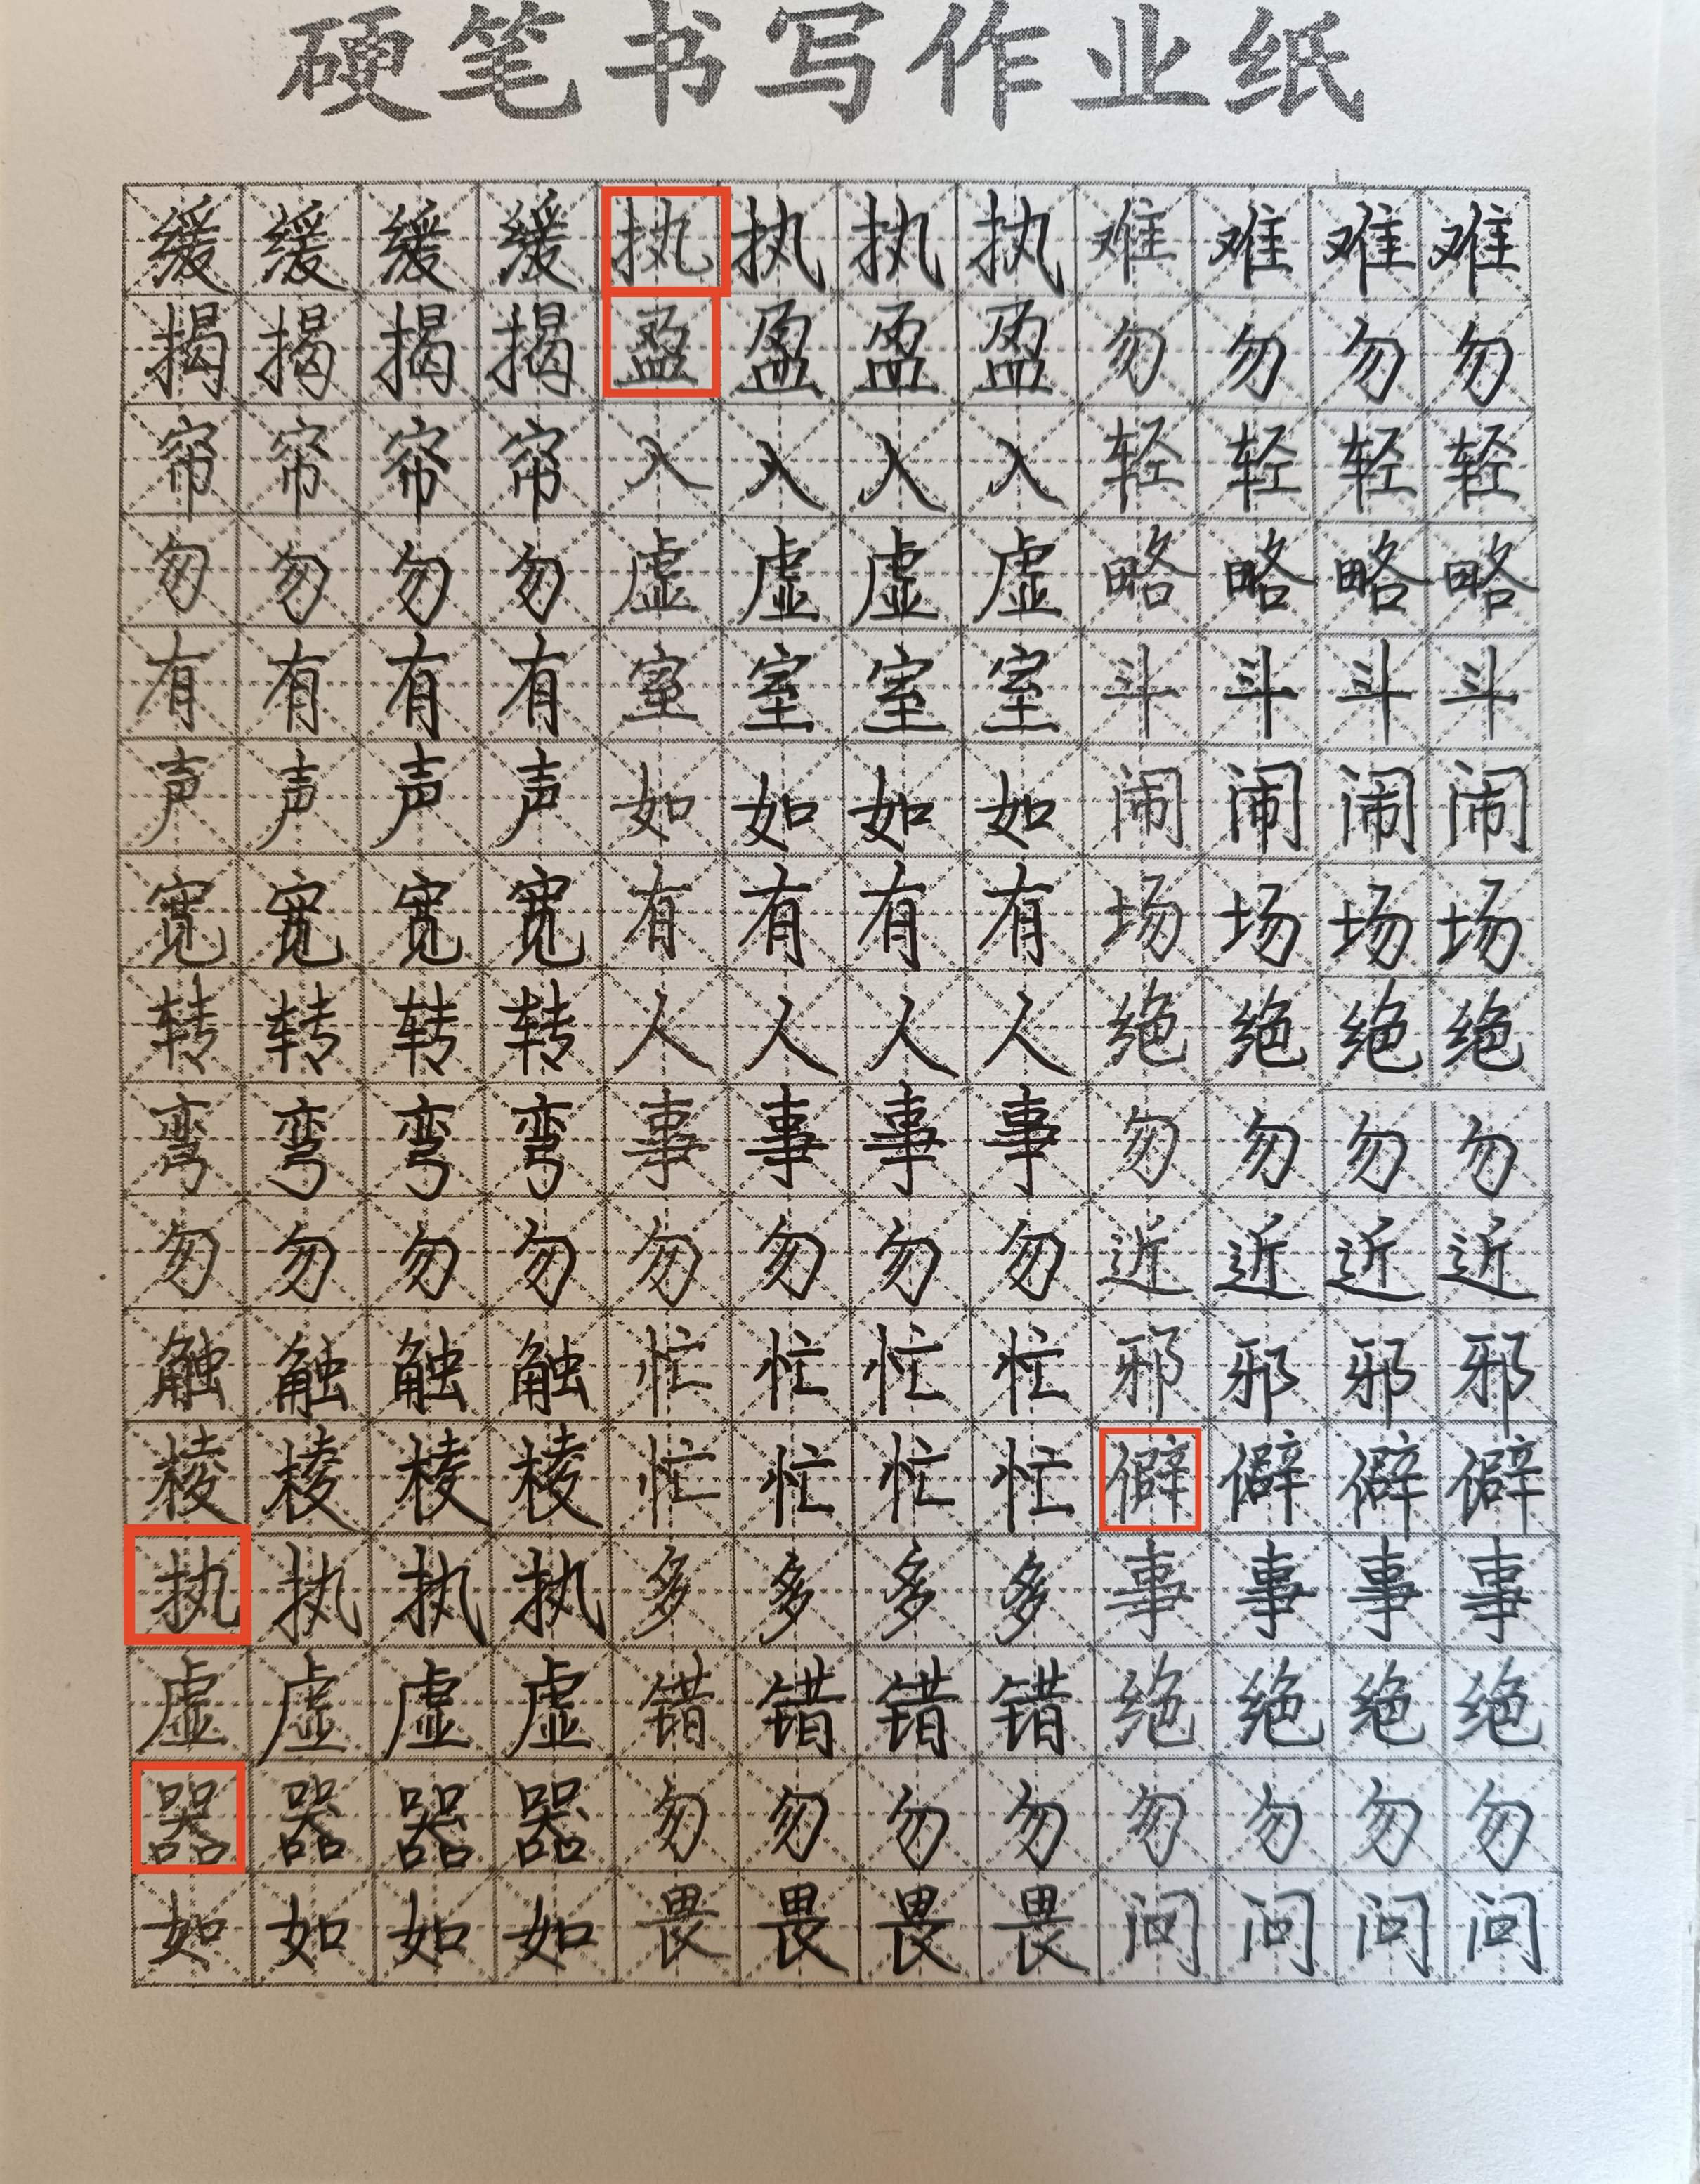 硬笔书写作业纸
缓缓缓缓执执执执难难难难
揭揭揭揭盈盈盈盈勿勿勿勿
帘帘帘帘入入入入轻轻轻轻
勿勿勿勿虚虚虚虚略略略略
有有有有室室室室斗斗斗斗
声声声声如如如如闹闹闹闹
宽宽宽宽有有有有场场场场
转转转转人人人人绝绝绝绝
弯弯弯弯事事事事勿勿勿勿
勿勿勿勿勿勿勿勿近近近近
触触触触忙忙忙忙邪邪邪邪
棱棱棱棱忙忙忙忙僻僻僻僻
执执执执多多多多事事事事
虚虚虚虚错错错错绝绝绝绝
器器器器勿勿勿勿勿勿勿勿
如如如如畏畏畏畏问问问问